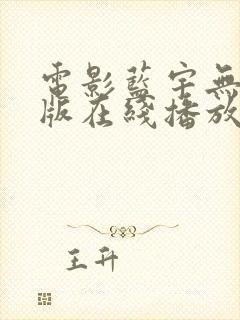 電影藍宇無
版在綫播放
王升